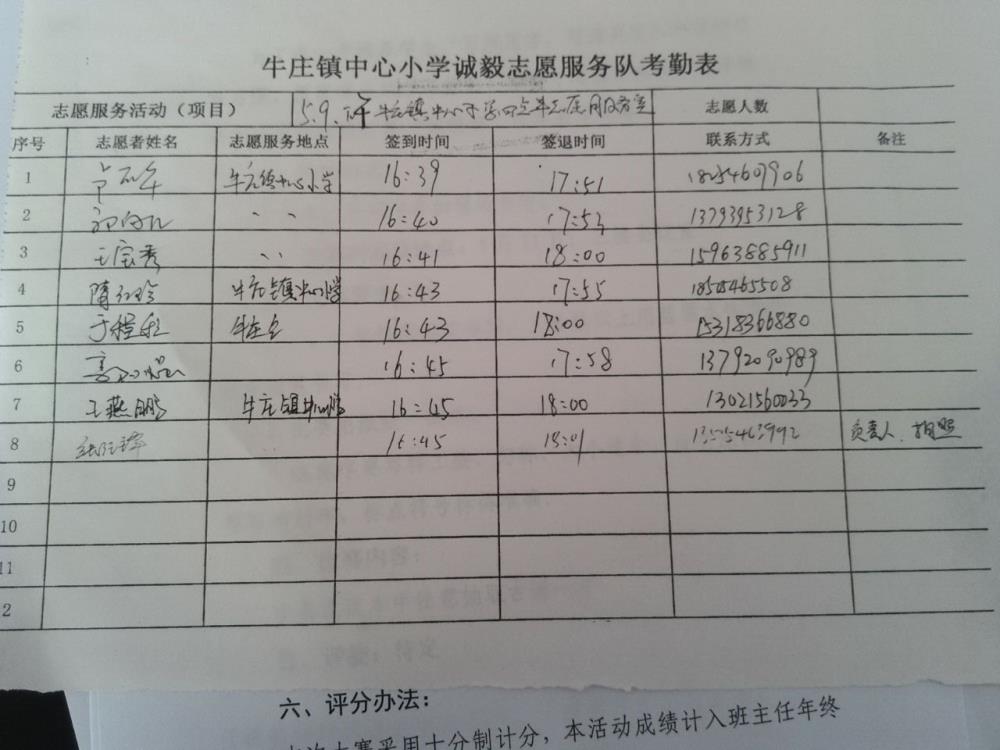 牛庄镇中心小学诚毅志愿服务队考勤表
志愿服务活动（项目） 5.9. 牛庄镇中心小学四点半志愿服务室 志愿人数
序号 志愿者姓名 志愿服务地点 签到时间 签退时间 联系方式 备注
1 牛庄镇中心小学 16:39 17:51 18254607906
2 、、 16:40 17:53 13793953128
3 王宝秀 、、 16:41 18:00 15963885911
4 隋红玲 牛庄镇中心小学 16:43 17:55
5 于程程 16:43 18:00 15318366880
6 16:45 17:58 13792090989
7 王燕鹏 牛庄镇 16:45 18:00 13021560033
8 16:45 18:01 负责人、拍照
9
10
11
2
六、评分办法：
本次大赛采用十分制计分，本活动成绩计入班主任年终